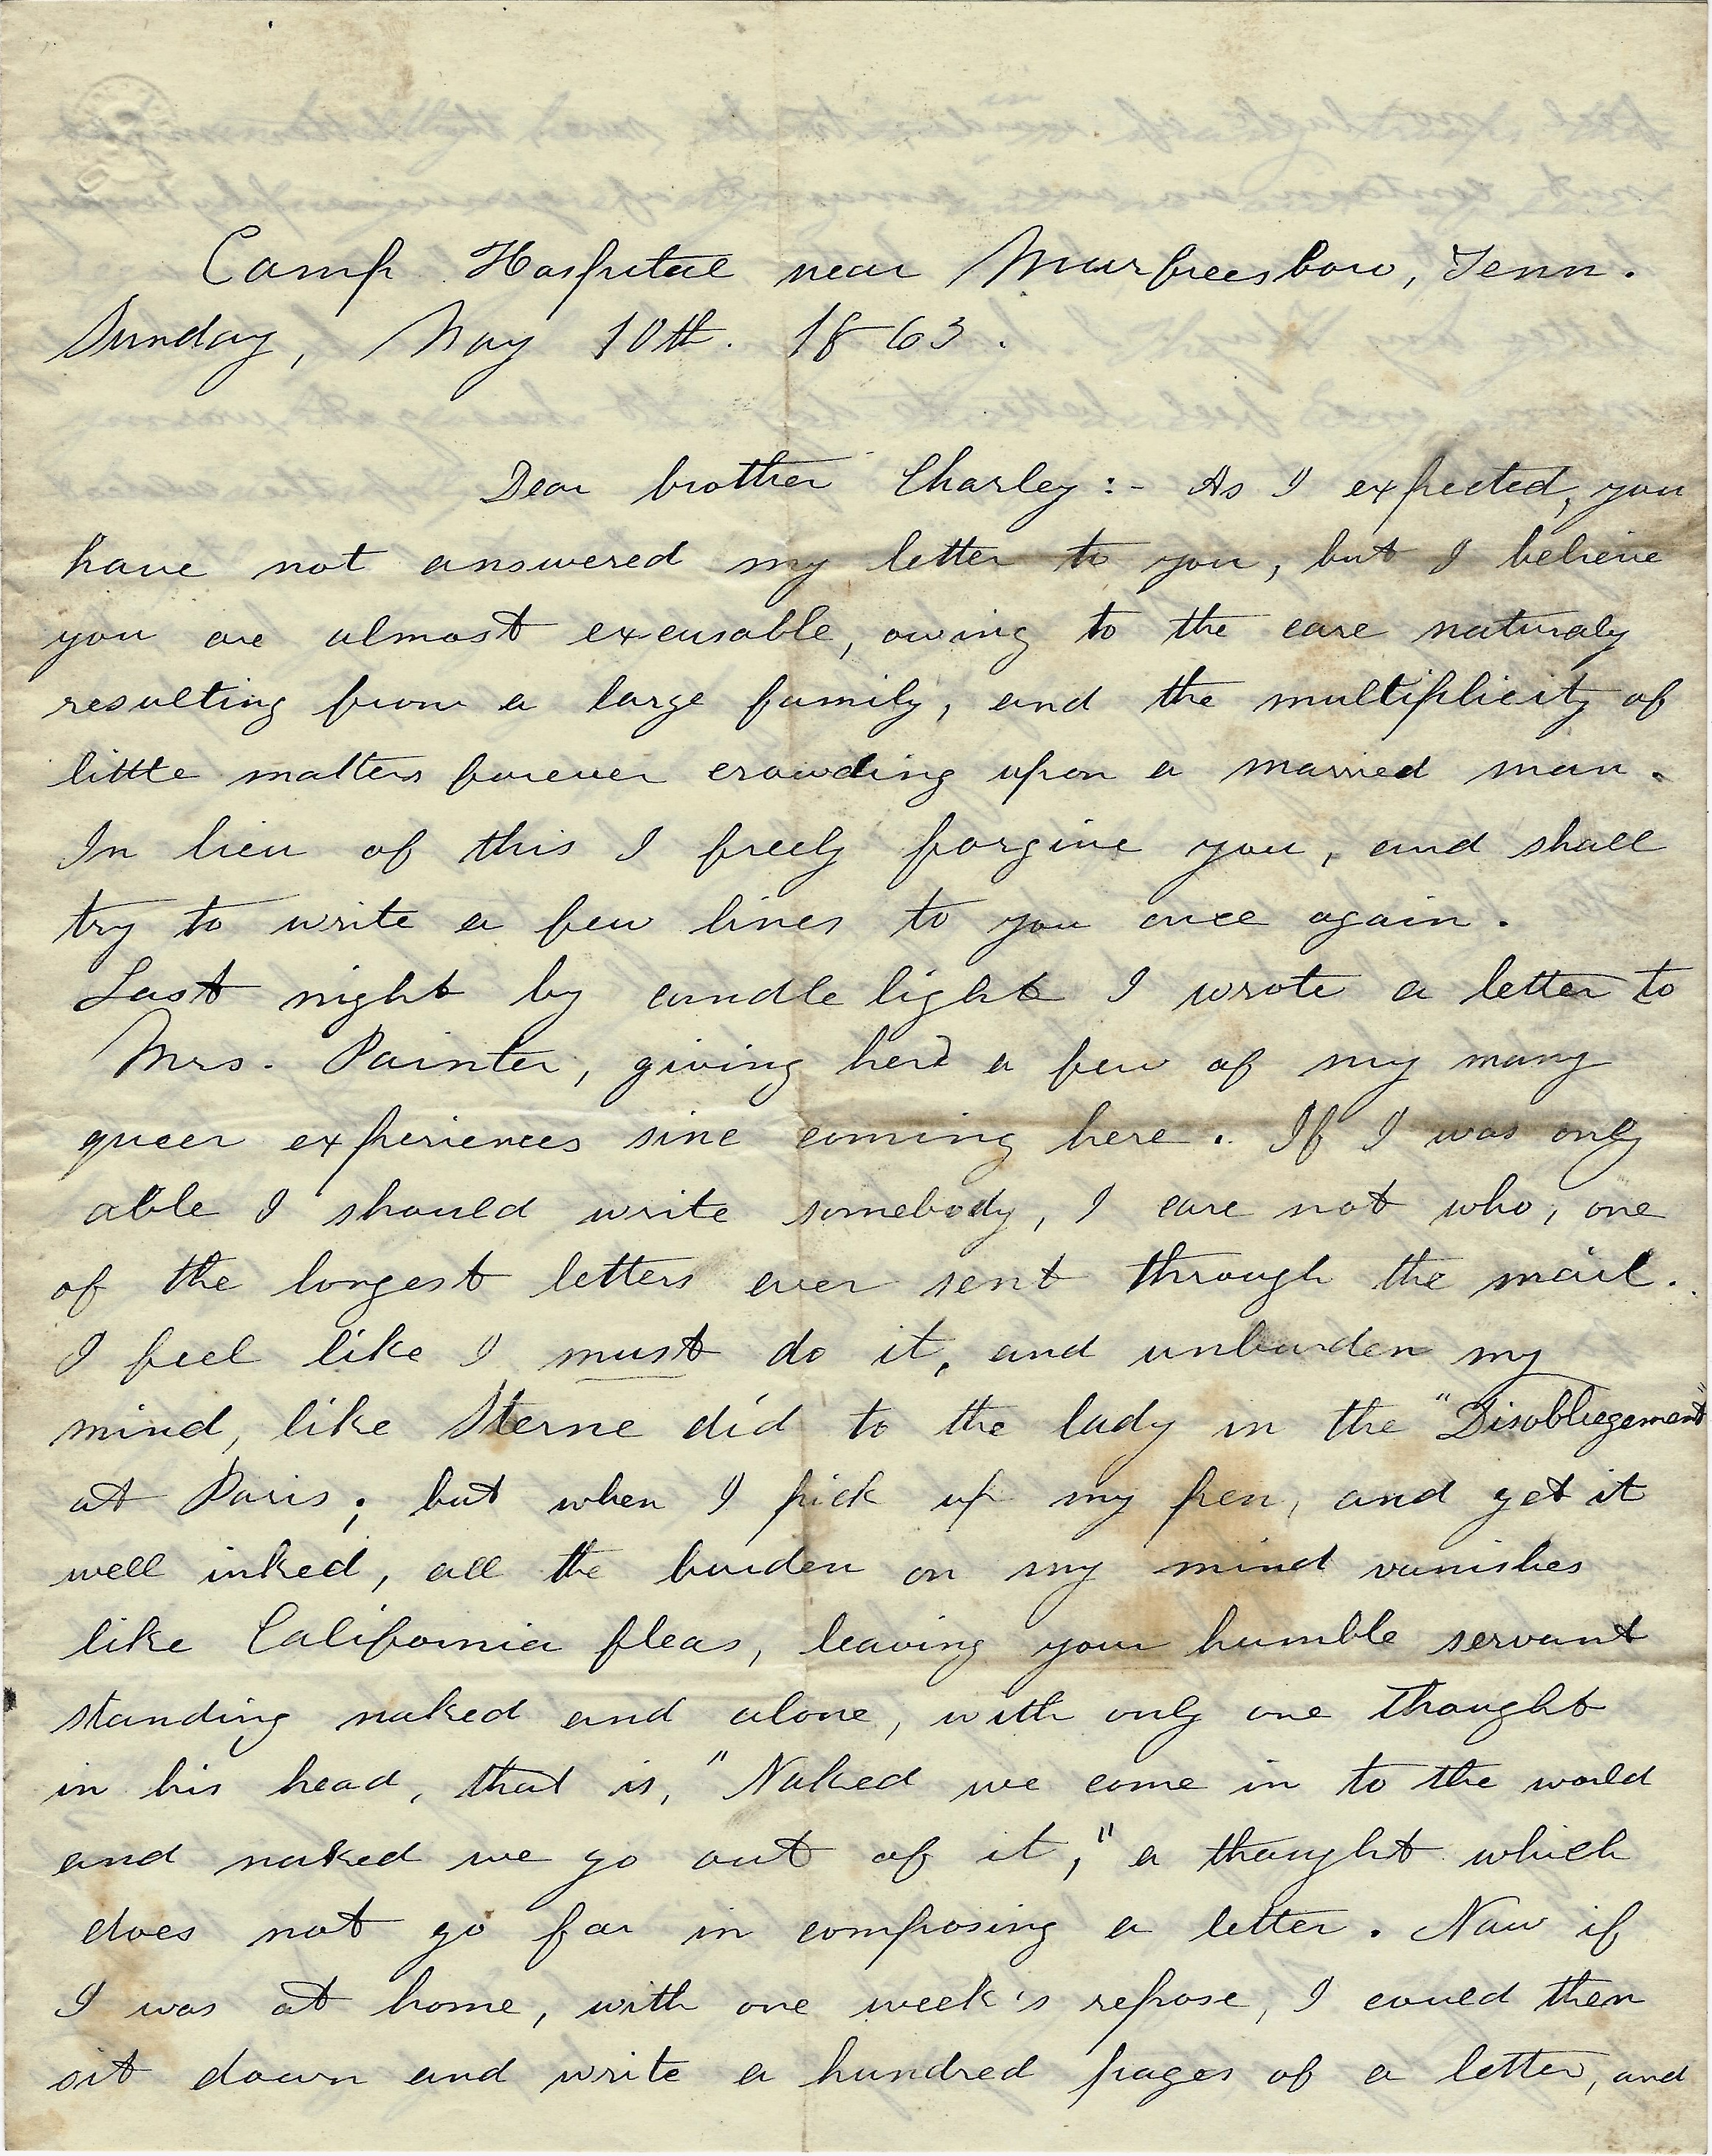 Camp Hospital near Murfreesboro, Tenn.
Sunday, May 10th. 1863.
Dear brother Charley:- As I expected, you
have not answered my letter to you, but I believe
you are almost excusable, owing to the care naturaly
resulting from a large family, and the multiplicity of
little matters forever crowding upon a married man.
In lieu of this I freely forgive you, and shall
try to write a few lines to you once again.
Last night by candle light I wrote a letter to
Mrs. Painter, giving her a few of my many
queer experiences sine coming here. If I was only
able I should write somebody, I care not who, one
of the longest letters ever sent through the mail.
I feel like I must do it, and unburden my
mind, like Sterne did to the lady in the "Disobliegement"
at Paris; but when I pick up my pen, and get it
well inked, all the burden on my mind vanishes
like California fleas, leaving your humble servant
standing naked and alone, with only one thought
in his head, that is, "Naked we come in to the world
and naked we go out of it," a thought which
does not go far in composing a letter. Now if
I was at home, with one week's repose, I could then
sit down and write a hundred pages of a letter, and